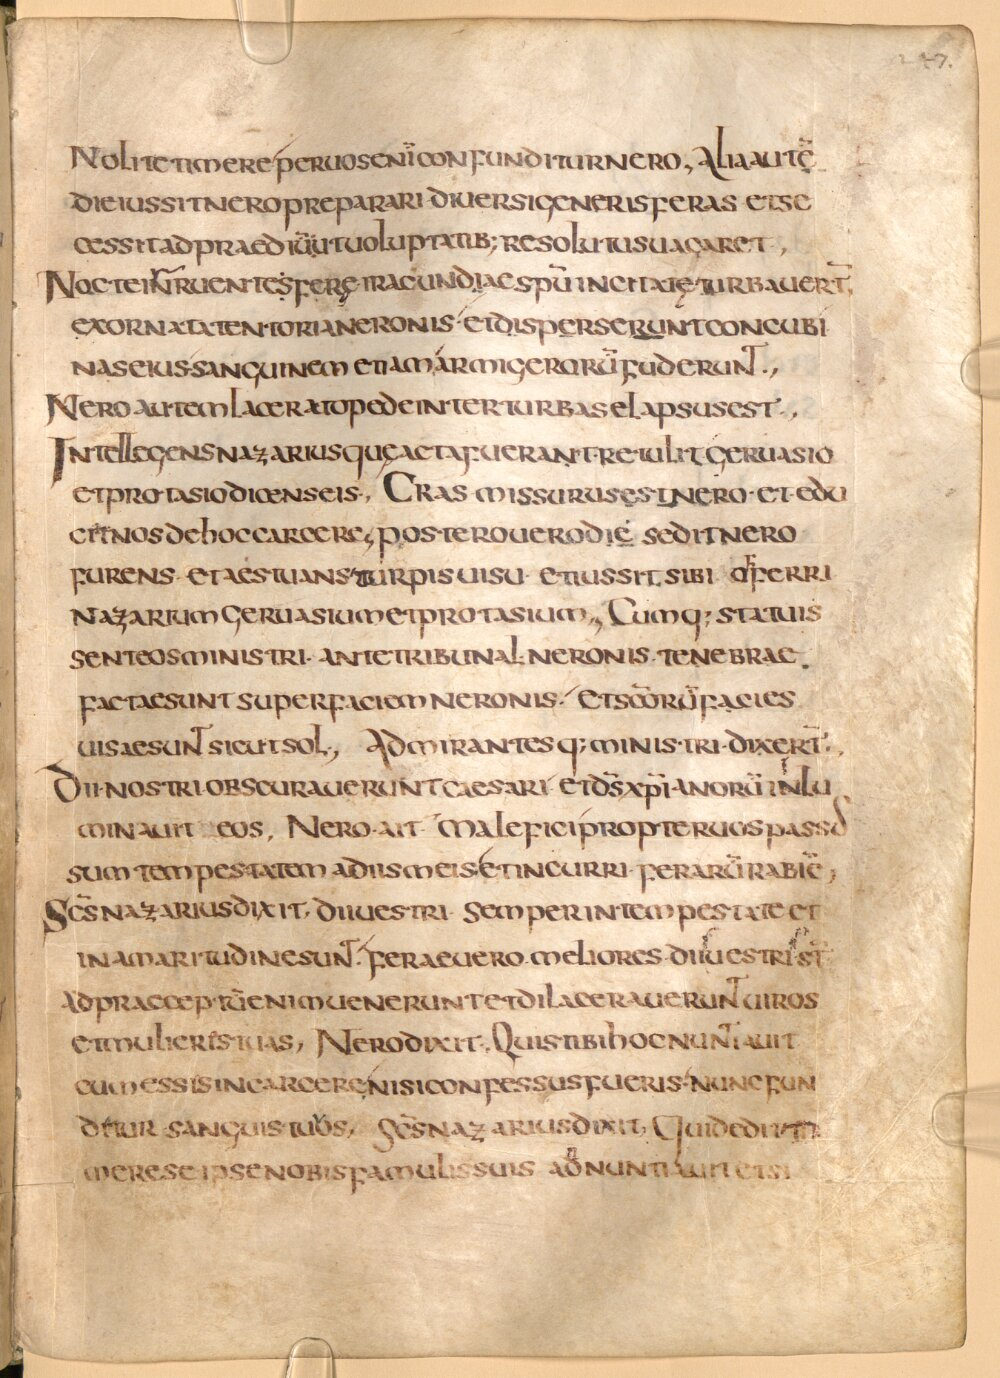 247.
Nolite timere per uos enī confunditur nero, Alia autē
die iussit nero preparari diuersi generis feras et se
cessit ad praediū, ut uoluptatib; resolutus uacaret,
Nocte inruentes ferę iracundiae spū incitatę turbauerт̄
exornata tentoria neronis et disperserunt concubi
nas eius sanguinem etiam armigerorū fuderunт̄.,
Nero autem lacerato pede inter turbas elapsus est.,
Intellegens nazarius quę acta fuerant retulit geruasio
et protasio dicens eis, Cras missurus est nero et edu
cit nos de hoc carcere, postero uero die sedit nero
furens et aestuans turpis uisu et iussit sibi offerri
nazarium geruasium et protasium, Cumq; statuis
sent eos ministri ante tribunal neronis tenebrae
factae sunt super faciem neronis et scōrū facies
uisae sunt sicut sol, Admirantesq; ministri dixerт̄.,
Dii nostri obscurauerunt caesari et ds̄ xp̄ianorū inlu
minauit eos, Nero ait malefici propter uos passus
sum tempestatem a diis meis et incurri ferarū rabiē,
Scs̄ nazarius dixit, dii uestri semper in tempestate et
in amaritudine sunt. ferae uero meliores diis uestris sт̄
Ad praeceptū enim uenerunt et dilacerauerunt uiros
et mulieris tuas, Nero dixit. Quis tibi hoc nuntiauit
cum essis in carcere, nisi confessus fueris nunc fun
ditur sanguis tuus, Scs̄ nazarius dixit, Qui dedit ti
mere se ipse nobis famulis suis adnuntiauit etsi